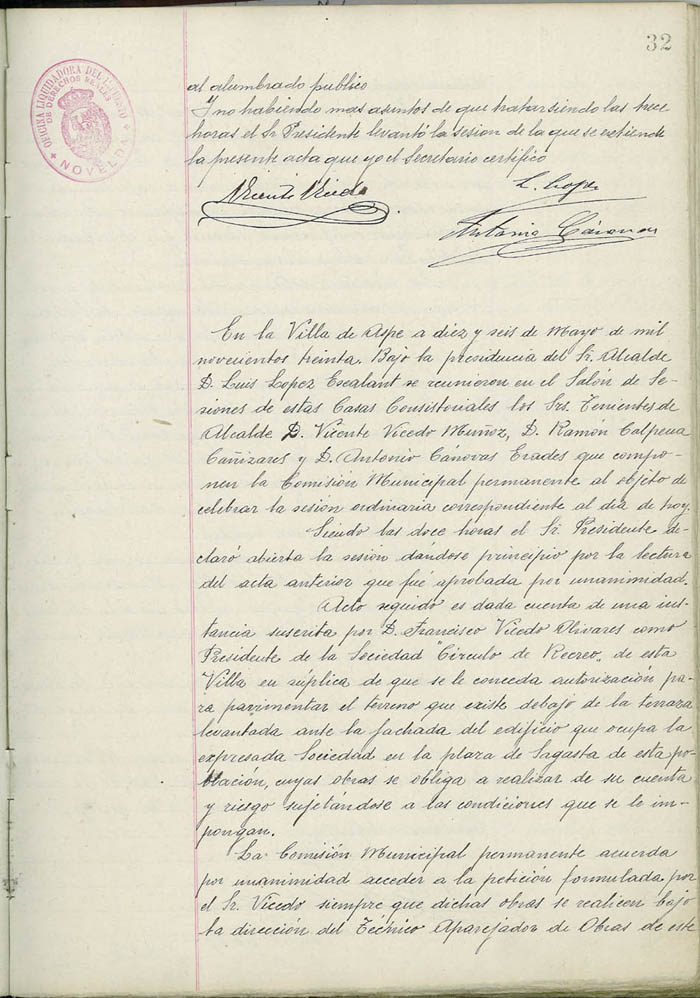 32
OFICINA LIQUIDADORA DEL IMPUESTO
DE DERECHOS REALES
NOVELDA
al alumbrado publico
Y no habiendo mas asuntos de que tratar siendo las trece
horas el Sr Presidente levantó la sesion de la que se extiende
la presente acta que yo el Secretario certifico
Vicente Vicedo
L. Lopez
Antonio Cánovas
En la Villa de Aspe a diez y seis de Mayo de mil
novecientos treinta. Bajo la presidencia del Sr. Alcalde
D. Luis Lopez Escalant se reunieron en el Salón de Se-
siones de estas Casas Consistoriales los Srs. Tenientes de
Alcalde D. Vicente Vicedo Muñoz, D. Ramón Calpena
Cañizares y D. Antonio Cánovas Erades que compo-
nen la Comisión Municipal permanente al objeto de
celebrar la sesion ordinaria correspondiente al dia de hoy.
Siendo las doce horas el Sr. Presidente de-
claró abierta la sesión dándose principio por la lectura
del acta anterior que fué aprobada por unanimidad.
Acto seguido es dada cuenta de una ins-
tancia suscrita por D. Francisco Vicedo Olivares como
Presidente de la Sociedad "Circulo de Recreo" de esta
Villa en súplica de que se le conceda autorización pa-
ra pavimentar el terreno que existe debajo de la terraza
levantada ante la fachada del edificio que ocupa la
expresada Sociedad en la plaza de Sagasta de esta po-
blación, cuyas obras se obliga a realizar de su cuenta
y riesgo sujetándose a las condiciones que se le im-
pongan.
La Comisión Municipal permanente acuerda
por unanimidad acceder a la petición formulada por
el Sr. Vicedo siempre que dichas obras se realicen bajo
la dirección del Técnico Aparejador de Obras de este